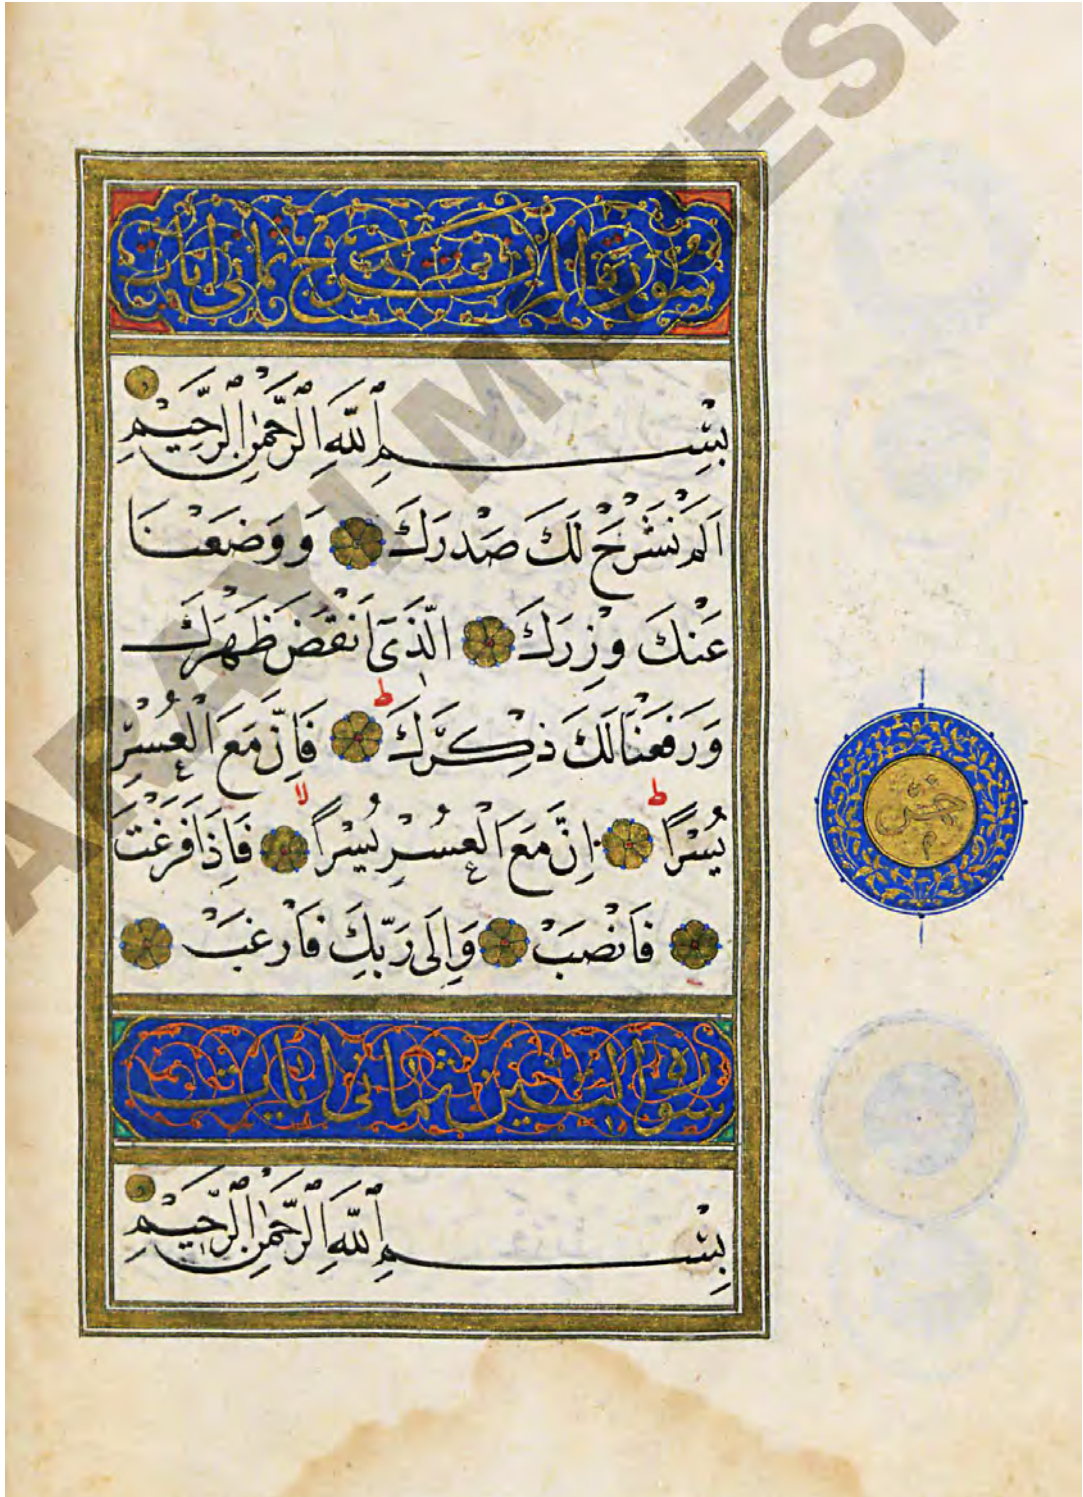 سورة الم نشرح ثماني ايات
بِسْمِ اللَّهِ الرَّحْمٰنِ الرَّحِيمِ
اَلَمْ نَشْرَحْ لَكَ صَدْرَكَ وَوَضَعْنَا
عَنْكَ وِزْرَكَ الَّذِى اَنْقَضَ ظَهْرَكَ
وَرَفَعْنَا لَكَ ذِكْرَكَ ط فَاِنَّ مَعَ الْعُسْرِ
يُسْرًا ط اِنَّ مَعَ الْعُسْرِ يُسْرًا لا فَاِذَا فَرَغْتَ
فَانْصَبْ وَاِلَى رَبِّكَ فَارْغَبْ
سورة التين ثماني ايات
بِسْمِ اللَّهِ الرَّحْمٰنِ الرَّحِيمِ